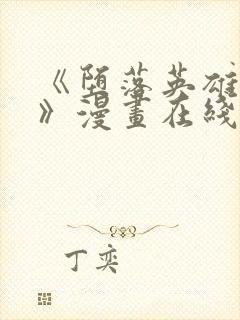 《堕落英雄
》漫畫在綫
丁奕